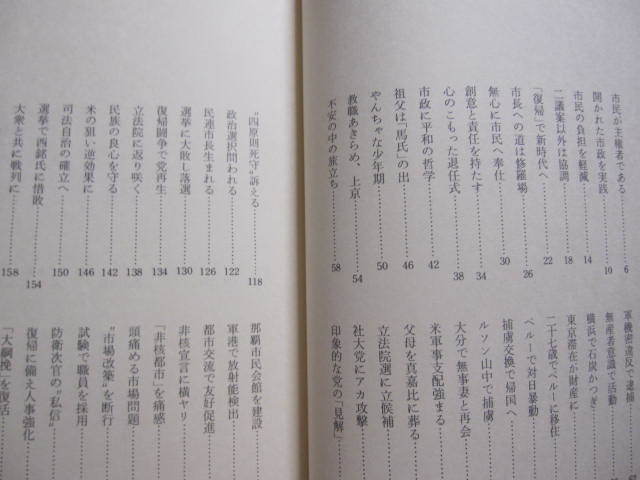 市民が主権者である……6
開かれた市政を実践……10
市民の負担を軽減……14
二議案以外は協調……18
「復帰」で新時代へ……22
市長への道は修羅場……26
無心に市民へ奉仕……30
創意と責任を持たす……34
心のこもった退任式……38
市政に平和の哲学……42
祖父は「馬氏」の出……46
やんちゃな少年期……50
教職あきらめ、上京……54
不安の中の旅立ち……58
軍機密違反で逮捕
無産者意識で活動
横浜で石炭かつぎ
東京滞在が財産に
二十七歳でペルーに移住
ペルーで対日暴動
捕虜交換で帰国へ
ルソン山中で捕虜
大分で無事妻と再会
米軍事支配強まる
父母を真嘉比に葬る
立法院選に立候補
社大党にアカ攻撃
印象的な党の「見解」
“四原則死守”訴える……118
政治選択問われる……122
民連市長生まれる……126
選挙に大敗し落選……130
復帰闘争で党再生……134
立法院に返り咲く……138
民族の良心を守る……142
米の狙い逆効果に……146
司法自治の確立へ……150
選挙で西銘氏に惜敗……154
大衆と共に審判に……158
那覇市民会館を建設
軍港で放射能検出
都市交流で友好促進
非核宣言に横ヤリ
「非核都市」を痛感
頭痛める市場問題
“市場改築”を断行
試験で職員を採用
防衛次官の“私信”
復帰に備え人事強化
「大綱挽」を復活